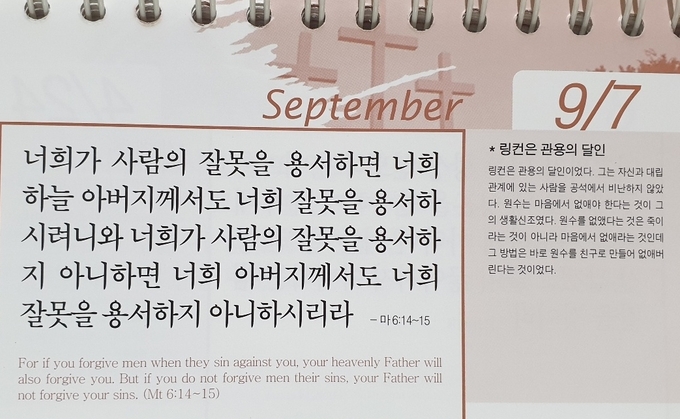 September
9/7
너희가 사람의 잘못을 용서하면 너희
하늘 아버지께서도 너희 잘못을 용서하
시려니와 너희가 사람의 잘못을 용서하
지 아니하면 너희 아버지께서도 너희
잘못을 용서하지 아니하시리라 - 마 6:14~15
For if you forgive men when they sin against you, your heavenly Father will
also forgive you. But if you do not forgive men their sins, your Father will
not forgive your sins. (Mt 6:14~15)
* 링컨은 관용의 달인
링컨은 관용의 달인이었다. 그는 자신과 대립
관계에 있는 사람을 공석에서 비난하지 않았
다. 원수는 마음에서 없애야 한다는 것이 그
의 생활신조였다. 원수를 없앴다는 것은 죽이
라는 것이 아니라 마음에서 없애라는 것인데
그 방법은 바로 원수를 친구로 만들어 없애버
린다는 것이었다.